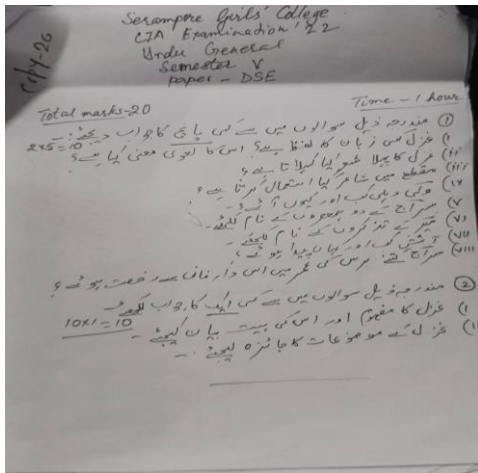 Serampore Girls' College
CIA Examination' 22
Urdu General
Semester V
Paper - DSE
Total marks-20 Time - 1 hour
① مندرجہ ذیل سوالوں میں سے کسی پانچ کا جواب دیجئے :-
2x5=10
i) غزل کس زبان کا لفظ ہے؟ اس کا لغوی معنی کیا ہے؟
ii) غزل کا پہلا شعر کیا کہلاتا ہے؟
iii) مقطع میں شاعر کیا استعمال کرتا ہے؟
iv) ولی دہلی کب اور کیوں آئے؟
v) سراج کے دو ہمعصروں کے نام لکھئے۔
vi) میر کے تذکروں کے نام لکھئے۔
vii) آتش کب اور کہاں پیدا ہوئے؟
viii) سراج کتنے برس کی عمر میں اس دار فانی سے رخصت ہوئے؟
② مندرجہ ذیل سوالوں میں سے کسی ایک کا جواب لکھئے
10x1=10
i) غزل کا مفہوم اور اس کی ہیت بیان کیجئے۔
ii) غزل کے موضوعات کا جائزہ لیجئے :-